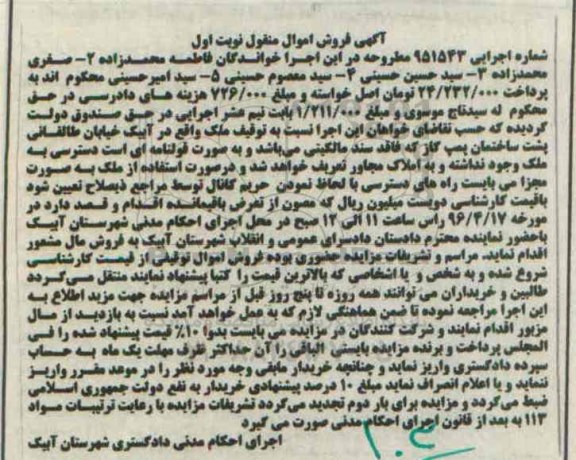 آگهی فروش اموال منقول نوبت اول
شماره اجرایی ۹۵۱۵۴۳ مطروحه در این اجرا خواندگان فاطمه محمدزاده ۲- صغری
محمدزاده ۳- سید حسین حسینی ۴- سید معصوم حسینی ۵- سید امیرحسینی محکوم اند به
پرداخت ۲۴/۲۳۲/۰۰۰ تومان اصل خواسته و مبلغ ۷۲۶/۰۰۰ هزینه های دادرسی در حق
محکوم له سیدتاج موسوی و مبلغ ۱/۲۱۱/۰۰۰ بابت نیم عشر اجرایی در حق صندوق دولت
گردیده که حسب تقاضای خواهان این اجرا نسبت به توقیف ملک واقع در آبیک خیابان طالقانی
پشت ساختمان پمپ گاز که فاقد سند مالکیتی می‌باشد و به صورت قولنامه ای است دسترسی به
ملک وجود نداشته و به املاک مجاور تعریف خواهد شد و درصورت استفاده از ملک به صورت
مجزا می بایست راه های دسترسی با لحاظ نمودن حریم کانال توسط مراجع ذیصلاح تعیین شود
باقیمت کارشناسی دویست میلیون ریال که مصون از تعرض باقیمانده اقدام و قصد دارد در
مورخه ۹۶/۴/۱۷ راس ساعت ۱۱ الی ۱۲ صبح در محل اجرای احکام مدنی شهرستان آبیک
باحضور نماینده محترم دادستان دادسرای عمومی و انقلاب شهرستان آبیک به فروش مال مشعور
اقدام نماید. مراسم و تشریفات مزایده حضوری بوده فروش اموال توقیفی از قیمت کارشناسی
شروع شده و به شخص و یا اشخاصی که بالاترین قیمت را کتبا پیشنهاد نمایند منتقل می‌گردد
طالبین و خریداران می توانند همه روزه تا پنج روز قبل از مراسم مزایده جهت مزید اطلاع به
این اجرا مراجعه نموده تا ضمن هماهنگی لازم که به عمل خواهد آمد نسبت به بازدید از مال
مزبور اقدام نمایند و شرکت کنندگان در مزایده می بایست بدوا ۱۰٪ قیمت پیشنهاد شده را فی
المجلس پرداخت و برنده مزایده بایستی الباقی را آن حداکثر ظرف مهلت یک ماه به حساب
سپرده دادگستری واریز نماید و چنانچه خریدار مابقی وجه مورد نظر را در موعد مقرر واریز
ننماید و یا اعلام انصراف نماید مبلغ ۱۰ درصد پیشنهادی خریدار به نفع دولت جمهوری اسلامی
ضبط می‌گردد و مزایده برای بار دوم تجدید می‌گردد تشریفات مزایده با رعایت ترتیبات مواد
۱۱۳ به بعد از قانون اجرای احکام مدنی صورت می گیرد
اجرای احکام مدنی دادگستری شهرستان آبیک